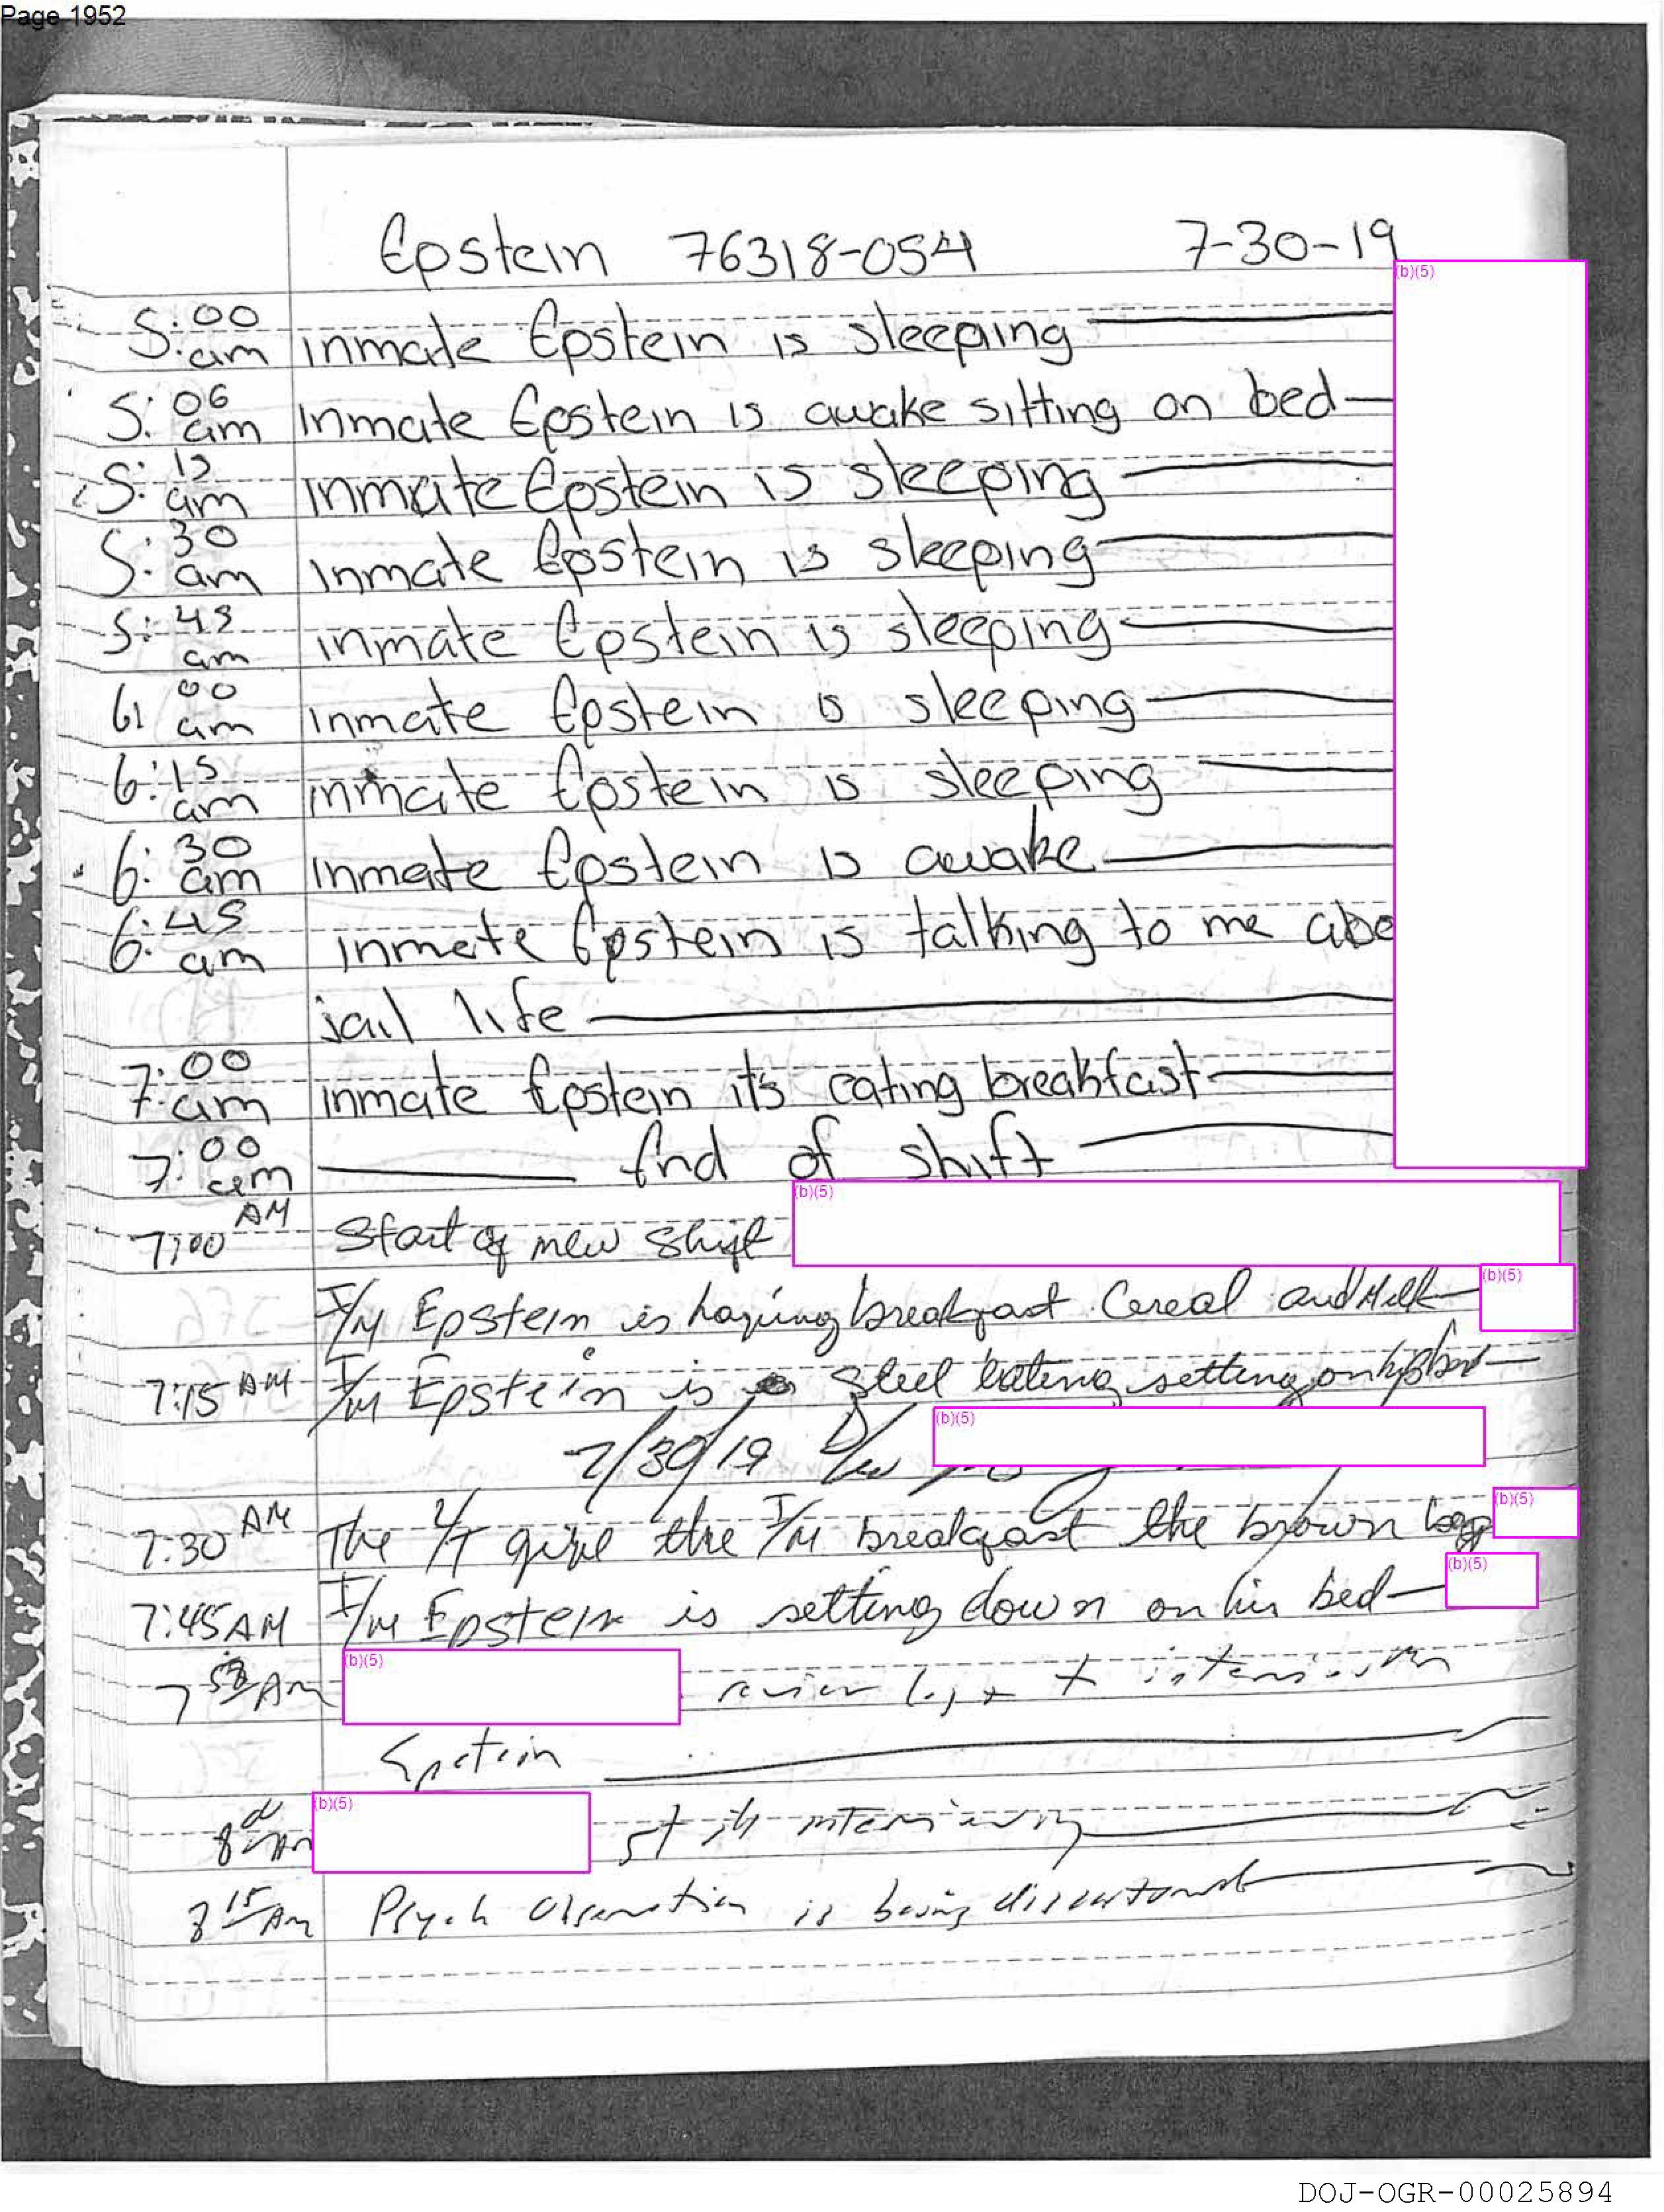 Page 1952
Epstein 76318-054 7-30-19
(b)(5)
5:00 am inmate Epstein is sleeping
5:06 am inmate Epstein is awake sitting on bed
5:15 am inmate Epstein is sleeping
5:30 am inmate Epstein is sleeping
5:45 am inmate Epstein is sleeping
6:00 am inmate Epstein is sleeping
6:15 am inmate Epstein is sleeping
6:30 am inmate Epstein is awake
6:45 am inmate Epstein is talking to me abo
jail life
7:00 am inmate Epstein it's eating breakfast
7:00 am End of shift
7:00 AM Start of new shift (b)(5)
I/M Epstein is having breakfast Cereal and Milk (b)(5)
7:15 AM I/M Epstein is steel eating setting on his bed
7/30/19 D/W (b)(5)
7:30 AM The give the I/M breakfast the brown bag (b)(5)
7:45 AM I/M Epstein is setting down on his bed (b)(5)
7 58 AM (b)(5) review log + interview
Epstein
8 AM (b)(5) still interviewing
8 15 AM Psych Observation is being
DOJ-OGR-00025894